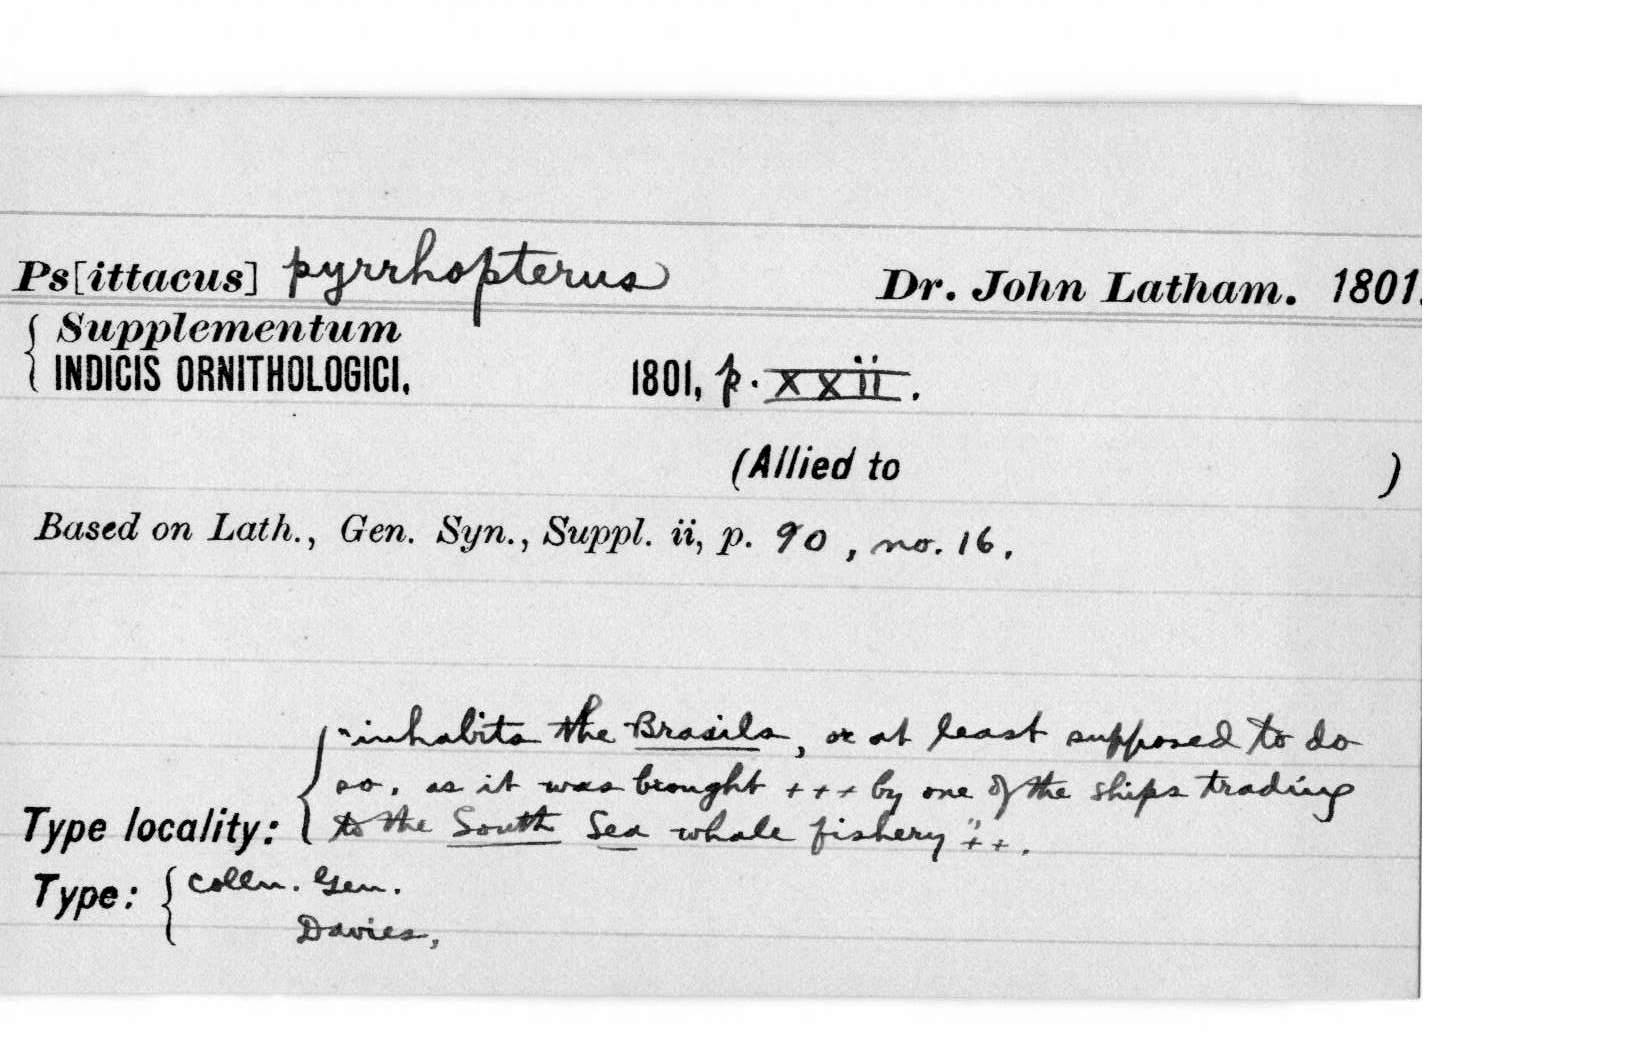 Ps[ittacus] pyrrhopterus Dr. John Latham. 1801.
Supplementum
INDICIS ORNITHOLOGICI, 1801, p. xxii.
(Allied to )
Based on Lath., Gen. Syn., Suppl. ii, p. 90, no. 16.
"inhabits the Brasils, or at least supposed to do
so, as it was brought +++ by one of the ships trading
Type locality: to the South Sea whale fishery" ++.
Type: Colln. Gen.
Davies,